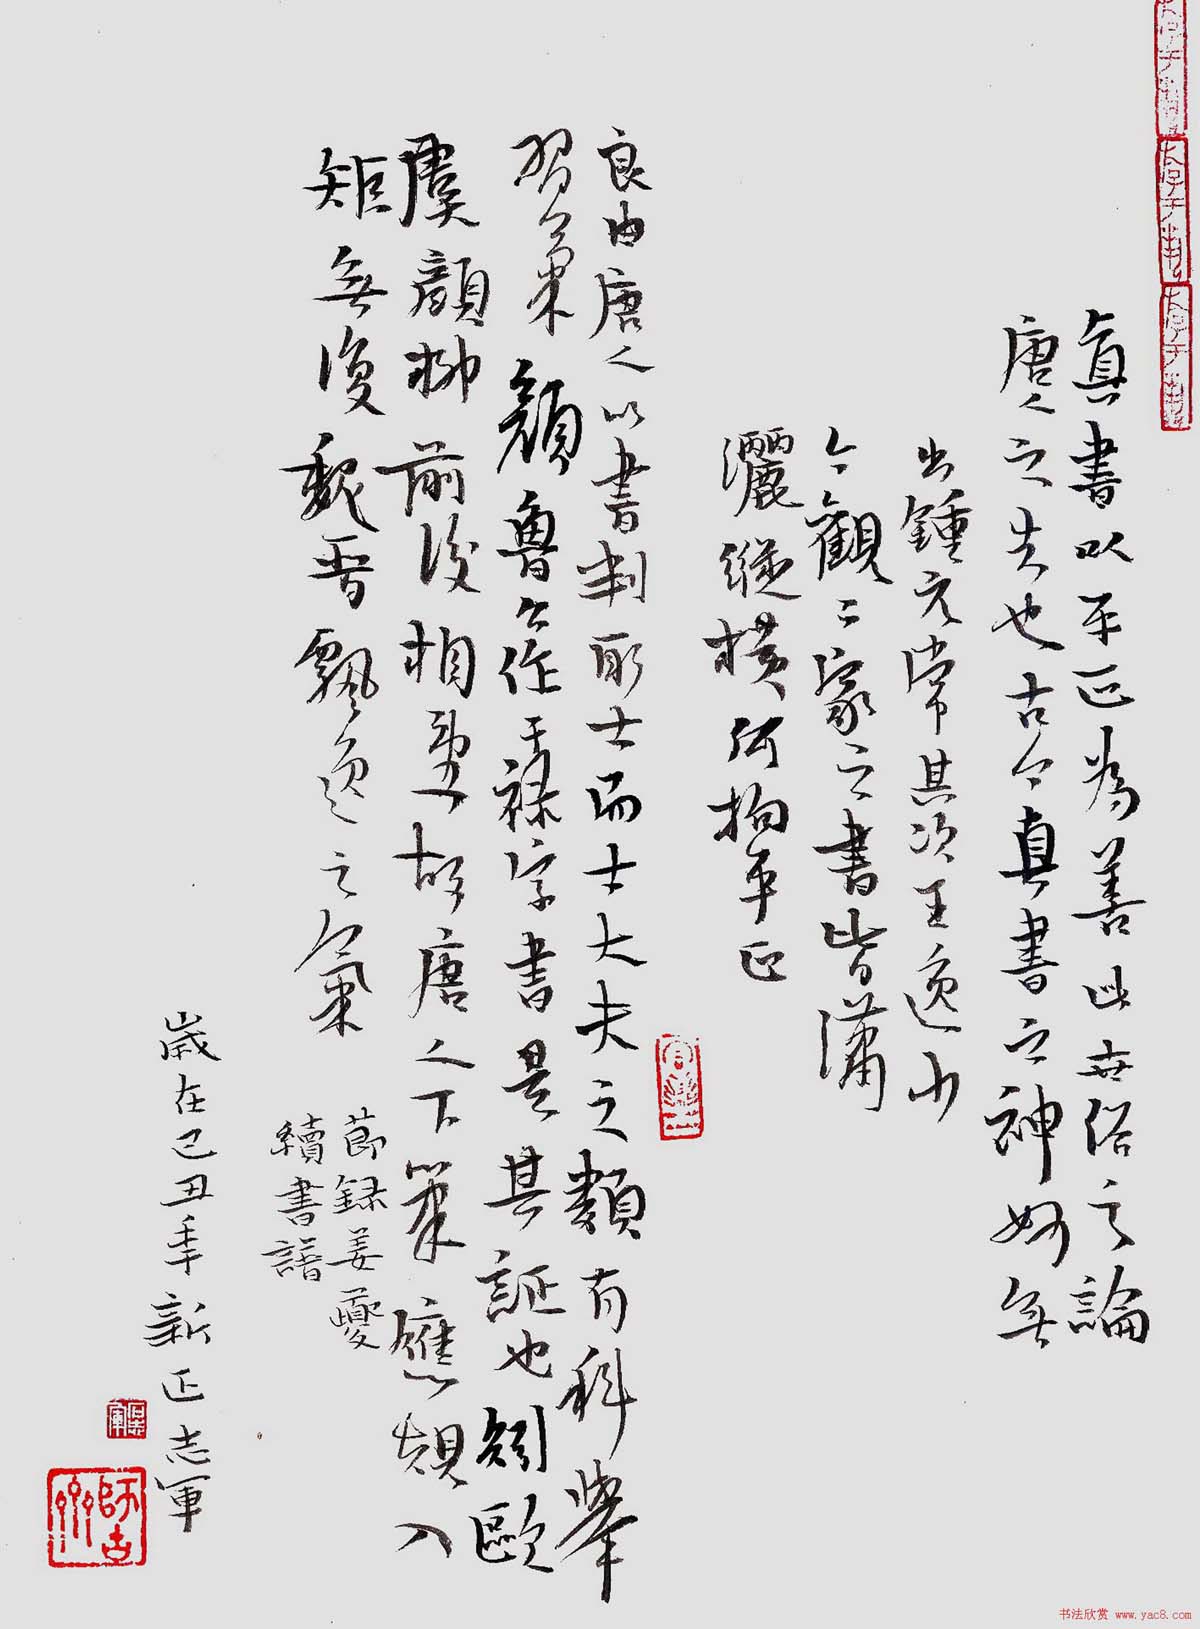 眞書以平正為善此世俗之論
唐人之失也古今真書之神妙無
出鍾元常其次王逸少
今觀二家之書皆瀟
灑縱橫何拘平正
良由唐人以書判取士而士大夫之類有科舉
習氣顏魯公作干祿字書是其証也矧歐
虞顏柳前後相望故唐人下筆應規入
矩無復魏晉飄逸之氣
節録姜夔
續書譜
歲在己丑年新正志軍
師古
书法欣赏 www.yac8.com